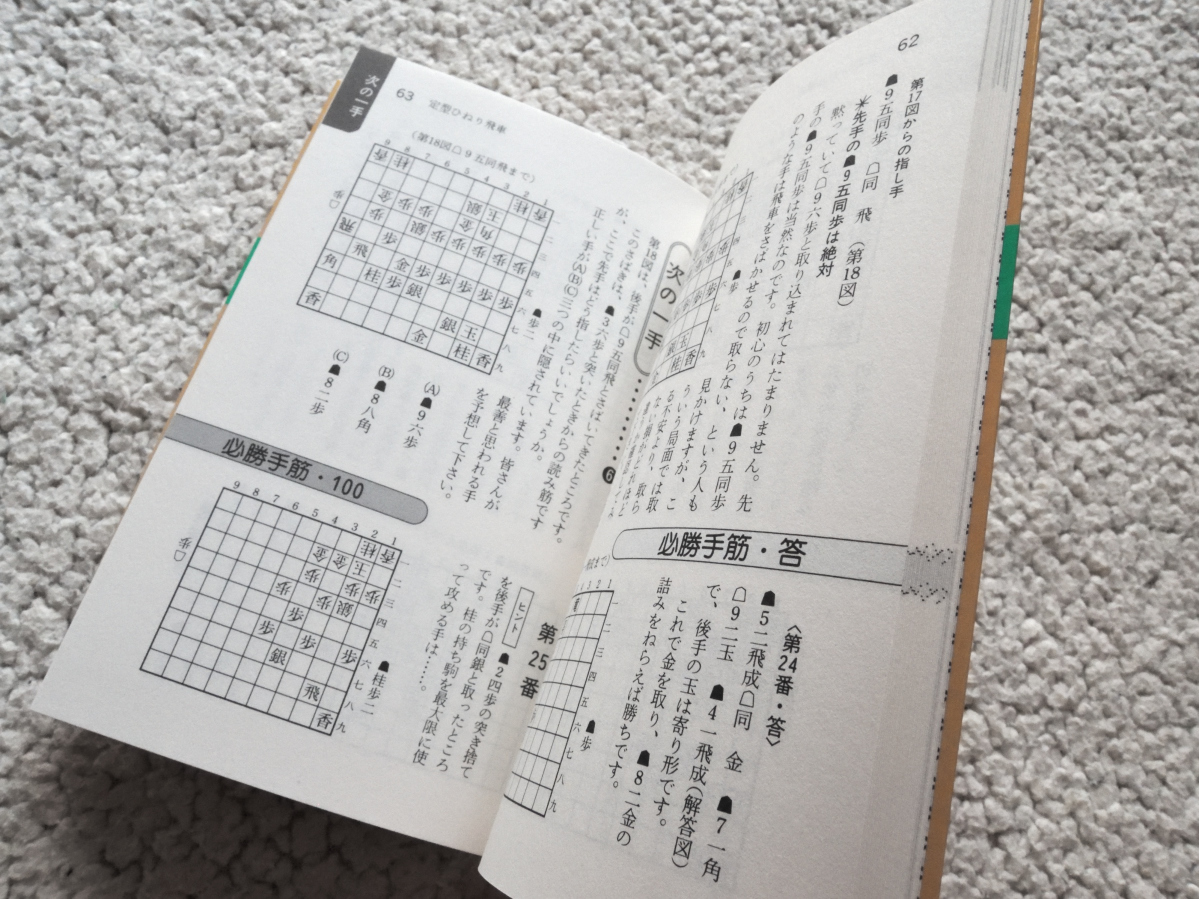 62
第17図からの指し手
☗9五同歩 ☖同 飛 (第18図)
✳先手の☗9五同歩は絶対
黙っていて☖9六歩と取り込まれてはたまりません。先
手の☗9五同歩は当然なのです。初心のうちは☗9五同歩
のような手は飛車をさばかせるので取らない、という人も
見かけますが、こ
ういう局面では取
る不安より、取
必勝手筋・答
〈第24番・答〉
☗5二飛成☖同 金 ☗7一角
☖9二玉 ☗4一飛成(解答図)
で、後手の玉は寄り形です。
これで金を取り、☗8二金の
詰みをねらえば勝ちです。
☗歩
次の一手
63
定型ひねり飛車
次の一手………❻
第18図は、後手が☖9五同飛とさばいてきたところです。
このさばきは、☗3六歩と突いたときからの読み筋です
が、ここで先手はどう指したらいいでしょうか。
正しい手が(A)(B)(C)三つの中に隠されています。
最善と思われる手
を予想して下さい。
皆さんが
(第18図☖9五同飛まで)
9 8 7 6 5 4 3 2 1
☗歩二
☖歩
(A)☗9六歩
(B)☗8八角
(C)☗8二歩
必勝手筋・100
第25番
ヒント
☗2四歩の突き捨て
を後手が☖同銀と取ったところ
です。桂の持ち駒を最大限に使
って攻める手は……。
9 8 7 6 5 4 3 2 1
☗桂歩二
☖歩